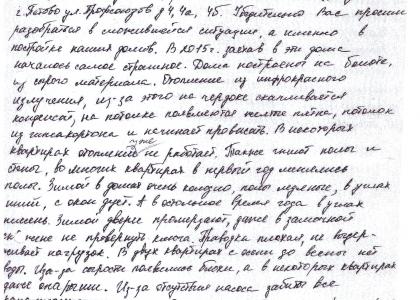 г. Гетово ул. Профсоюзов д 4, 4а, 4б. Убедительно Вас просим
разобраться в сложившейся ситуации, а именно в
постройке наших домов. В 2015г. заехав в эти дома
началось самое страшное. Дома построены на болоте,
из сырого материала. Отопление из инфракрасного
излучения, из-за этого на чердаке скапливается
конденсат, на потолке появляются желтые пятна, потолок
из гипсакартона и начинает провисать. В некоторых
квартирах отопление уже не работает. Также гниют полы и
стены, во многих квартирах в первый год менялись
полы. Зимой в домах очень холодно, полы ледяные, в углах
иней, с окон дует. А в остальное время года в углах
плесень. Зимой двери промерзают, даже в замочной
не провернуть ключа. Проводка плохая, не выдер-
живает нагрузок. В двух квартирах с осени до весны нет
воды. Из-за сырости появились блохи, а в некоторых квартирах
даже опарыши. Из-за отсутствия насоса забиты все